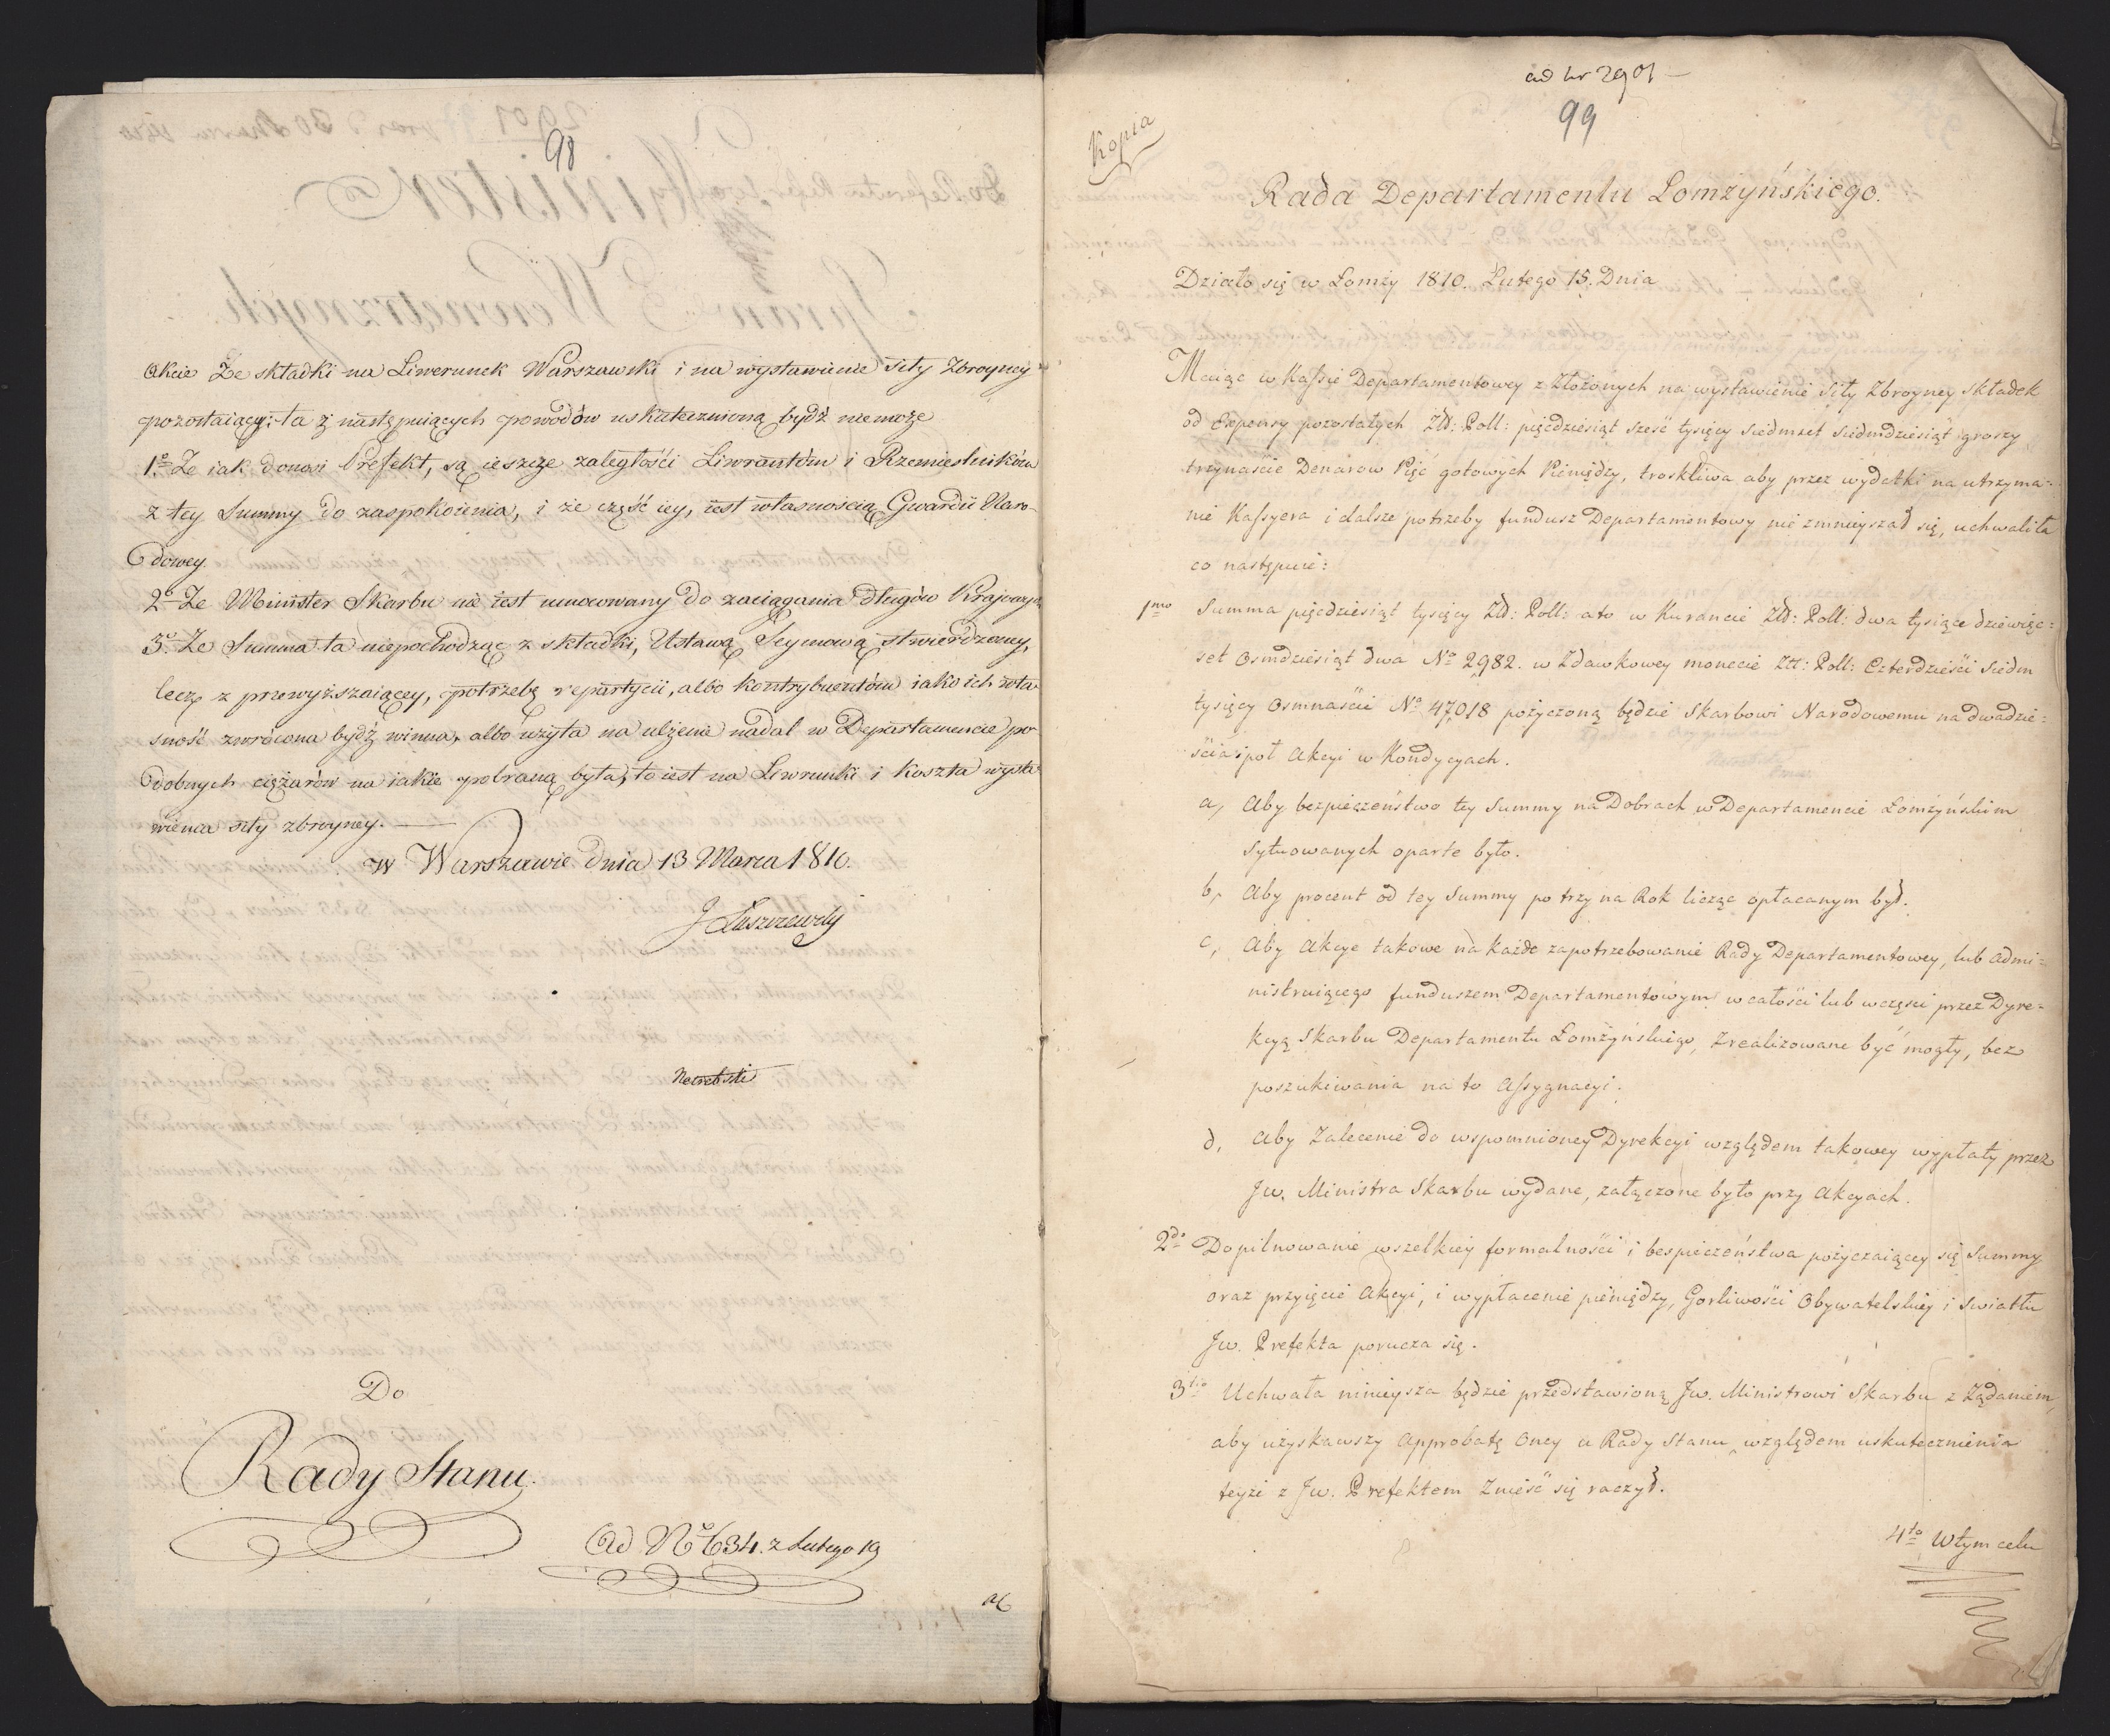 98
Akcie Ze składki na Liwerunek Warszawski i na wystawienie siły Zbroyney
pozostaiącey: ta z następuiących powodów uskutecznioną bydź niemoże
1o Ze iak donosi Prefekt, są ieszcze zaległości Liwrantów i Rzemieslników
z tey Summy do zaspokoienia, i że część iey, iest własnością Gwardii Naro-
dowey.
2o Ze Minister Skarbu nie iest umocowany do zaciągania długów Kraiowych
3o Ze Summa ta niepochodząc z składki, Ustawą Seymową stwierdzoney,
lecz z przewyższaiącey, potrzebę repartycii, albo kontrybuentów iako ich wła-
sność zwrócona bydź winna, albo użyta na ulżenie nadal w Departamencie po-
dobnych ciężarów na iakie pobraną była, to iest na Liwrunki i koszta wysta-
wienia siły zbroyney.
w Warszawie dnia 13 Marca 1810.
J Łuszczewsky
Netrebski
Do
Rady Stanu.
Ad No 634. z Lutego 19
ad nr 2901 —
99
Kopia
Rada Departamentu Łomżyńskiego.
Działo się w Łomży 1810. Lutego 15. Dnia
Maiąc w Kassie Departamentowey z Złożonych na wystawienie Siły Zbroyney składek
od Expensy pozostałych Złł: Poll: pięćdziesiąt sześć tysięcy siedmset siedmdziesiąt groszy
trzynaście Denarow Pięć gotowych Pieniędzy, troskliwa aby przez wydatki na utrzyma=
nie Kassyera i dalsze potrzeby fundusz Departamentowy nie zmnieyszał się, uchwaliła
co następuie:
1mo Summa pięćdziesiąt tysięcy Złł: Poll: a to w Kurancie Złł: Poll: dwa tysiące dziewięć=
set osmdziesiąt dwa No 2982. w Zdawkowey monecie Złł: Poll: Czterdzieści Siedm
tysięcy osmnaście No 47,018 pożyczoną będzie Skarbowi Narodowemu na dwadzie=
ścia pół Akcyi w Kondycyach.
a, Aby bezpieczeństwo tey Summy na Dobrach w Departamencie Łomżyńskim
sytuowanych oparte było.
b, Aby procent od tey Summy po trzy na Rok licząc opłacanym był.
c, Aby Akcye takowe na każde zapotrzebowanie Rady Departamentowey, lub Admi=
nistruiącego funduszem Departamentowym w całości lub w części przez Dyre=
kcyą Skarbu Departamentu Łomżyńskiego, Zrealizowane być mogły, bez
poszukiwania na to Assygnacyi.
d, Aby Zalecenie do wspomnioney Dyrekcyi względem takowey wypłaty przez
Jw. Ministra Skarbu wydane, załączone było przy Akcyach.
2do Dopilnowanie wszelkiey formalności i bespieczeństwa pożyczaiącey się Summy
oraz przyięcie Akcyi, i wypłacenie pieniędzy, Gorliwości Obywatelskiey i Swiatłu
Jw. Prefekta porucza się.
3tio Uchwała ninieysza będzie przedstawioną Jw. Ministrowi Skarbu z Żądaniem,
aby uzyskawszy Approbatę oney u Rady Stanu, względem uskutecznienia
teyże z Jw. Prefektem Znieść się raczył.
4to W tym celu